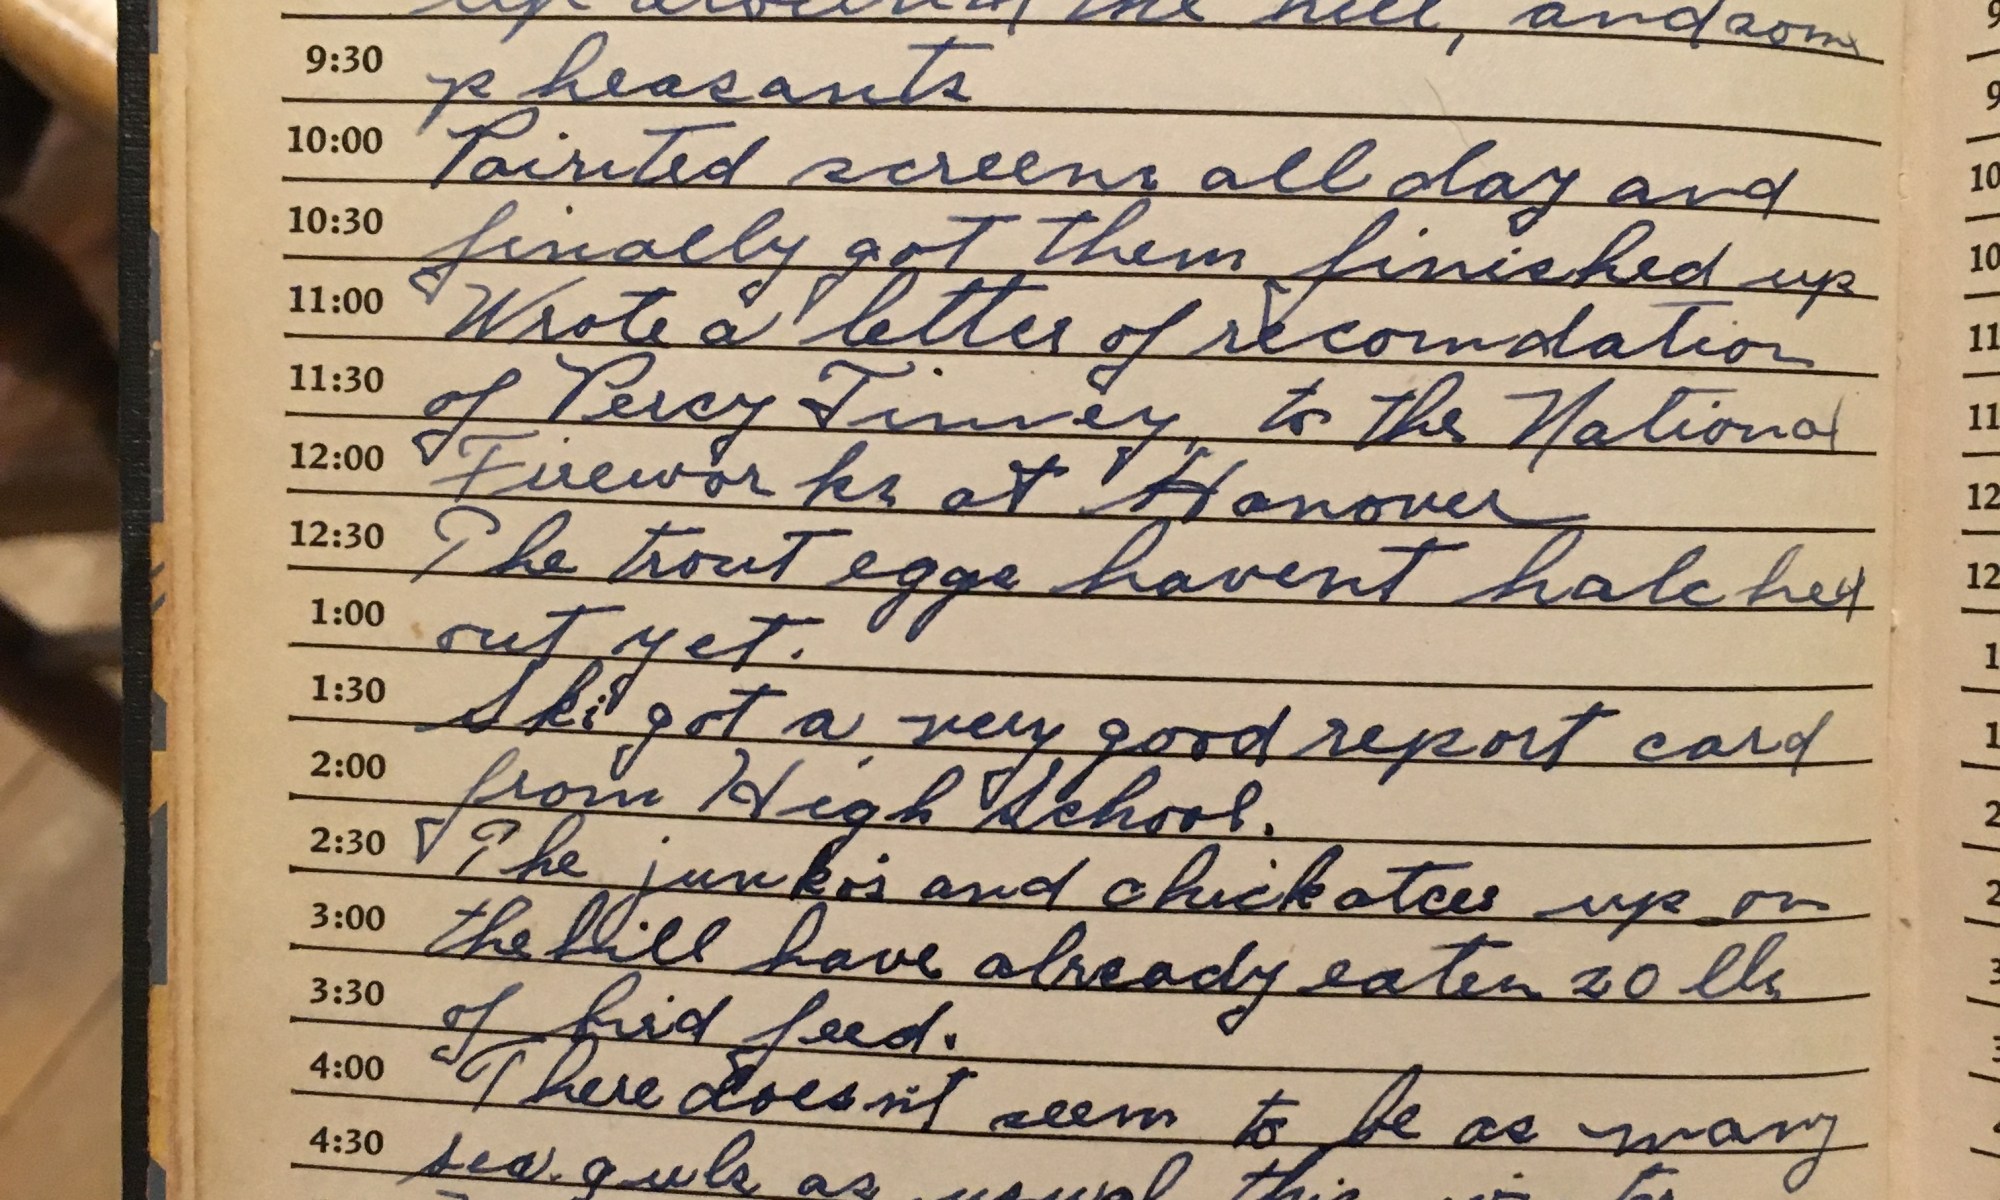 up around the hill, and som
9:30 pheasants
10:00 Painted screens all day and
10:30 finally got them finished up
11:00 Wrote a letter of recomdation
11:30 of Percy Tinney, to the National
12:00 Fireworks at Hanover
12:30 The trout eggs havent hatched
1:00 out yet.
1:30 Ski got a very good report card
2:00 from High School.
2:30 The junkos and chickatees up on
3:00 the hill have already eaten 20 lbs
3:30 of bird feed.
4:00 There doesn't seem to be as many
4:30 sea guls as usual this winter